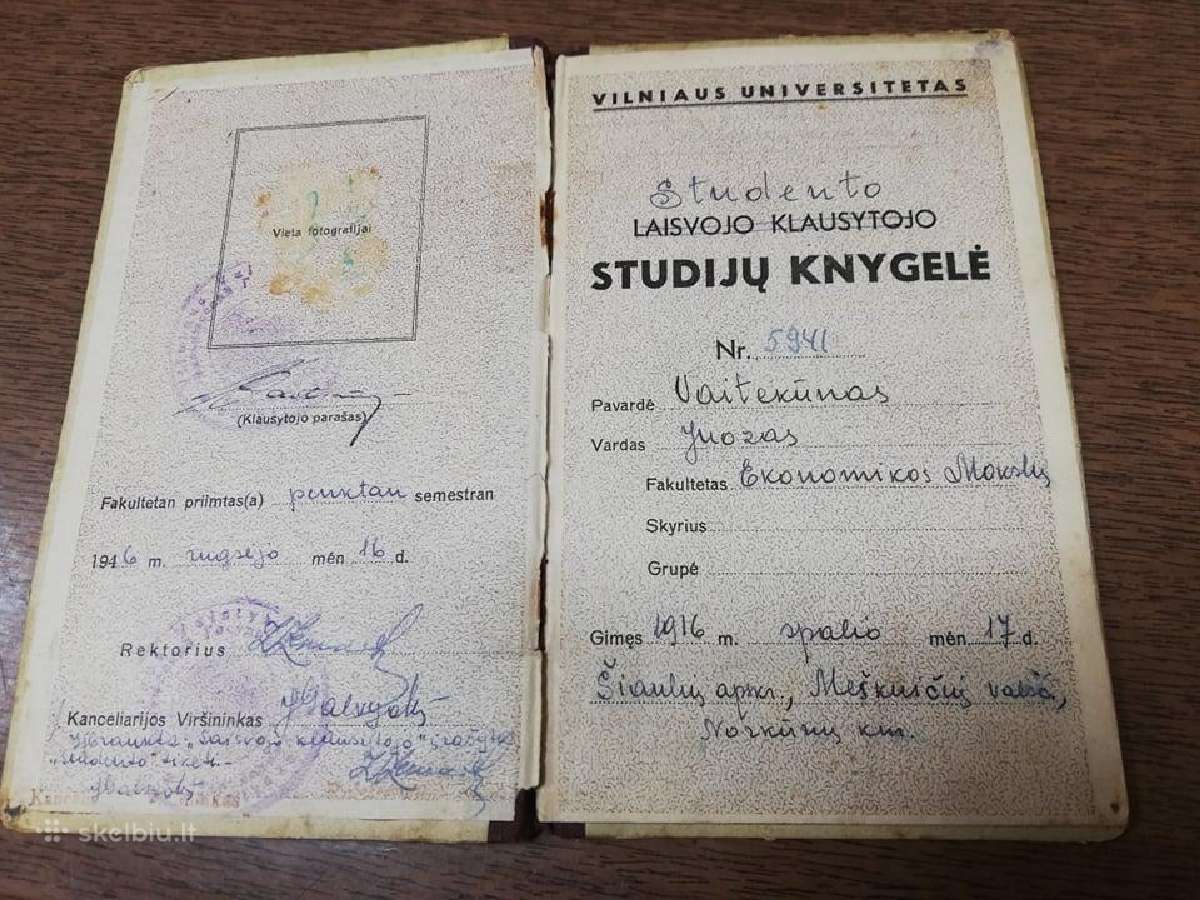 Vieta fotografijai
(Klausytojo parašas)
Fakultetan priimtas(a) penktan semestran
1946 m. rugsėjo mėn 16 d.
Rektorius
Kanceliarijos Viršininkas
Išbraukta „Laisvojo klausytojo“ įrašyta
„Studento“ tikėti.-
skelbiu.lt
VILNIAUS UNIVERSITETAS
Studento
LAISVOJO KLAUSYTOJO
STUDIJŲ KNYGELĖ
Nr. 5941
Pavardė Vaitekūnas
Vardas Juozas
Fakultetas Ekonomikos Mokslų
Skyrius
Grupė
Gimęs 1916 m. spalio mėn 17 d.
Šiaulių apskr., Meškuičių valsč,
Norkūnų km.